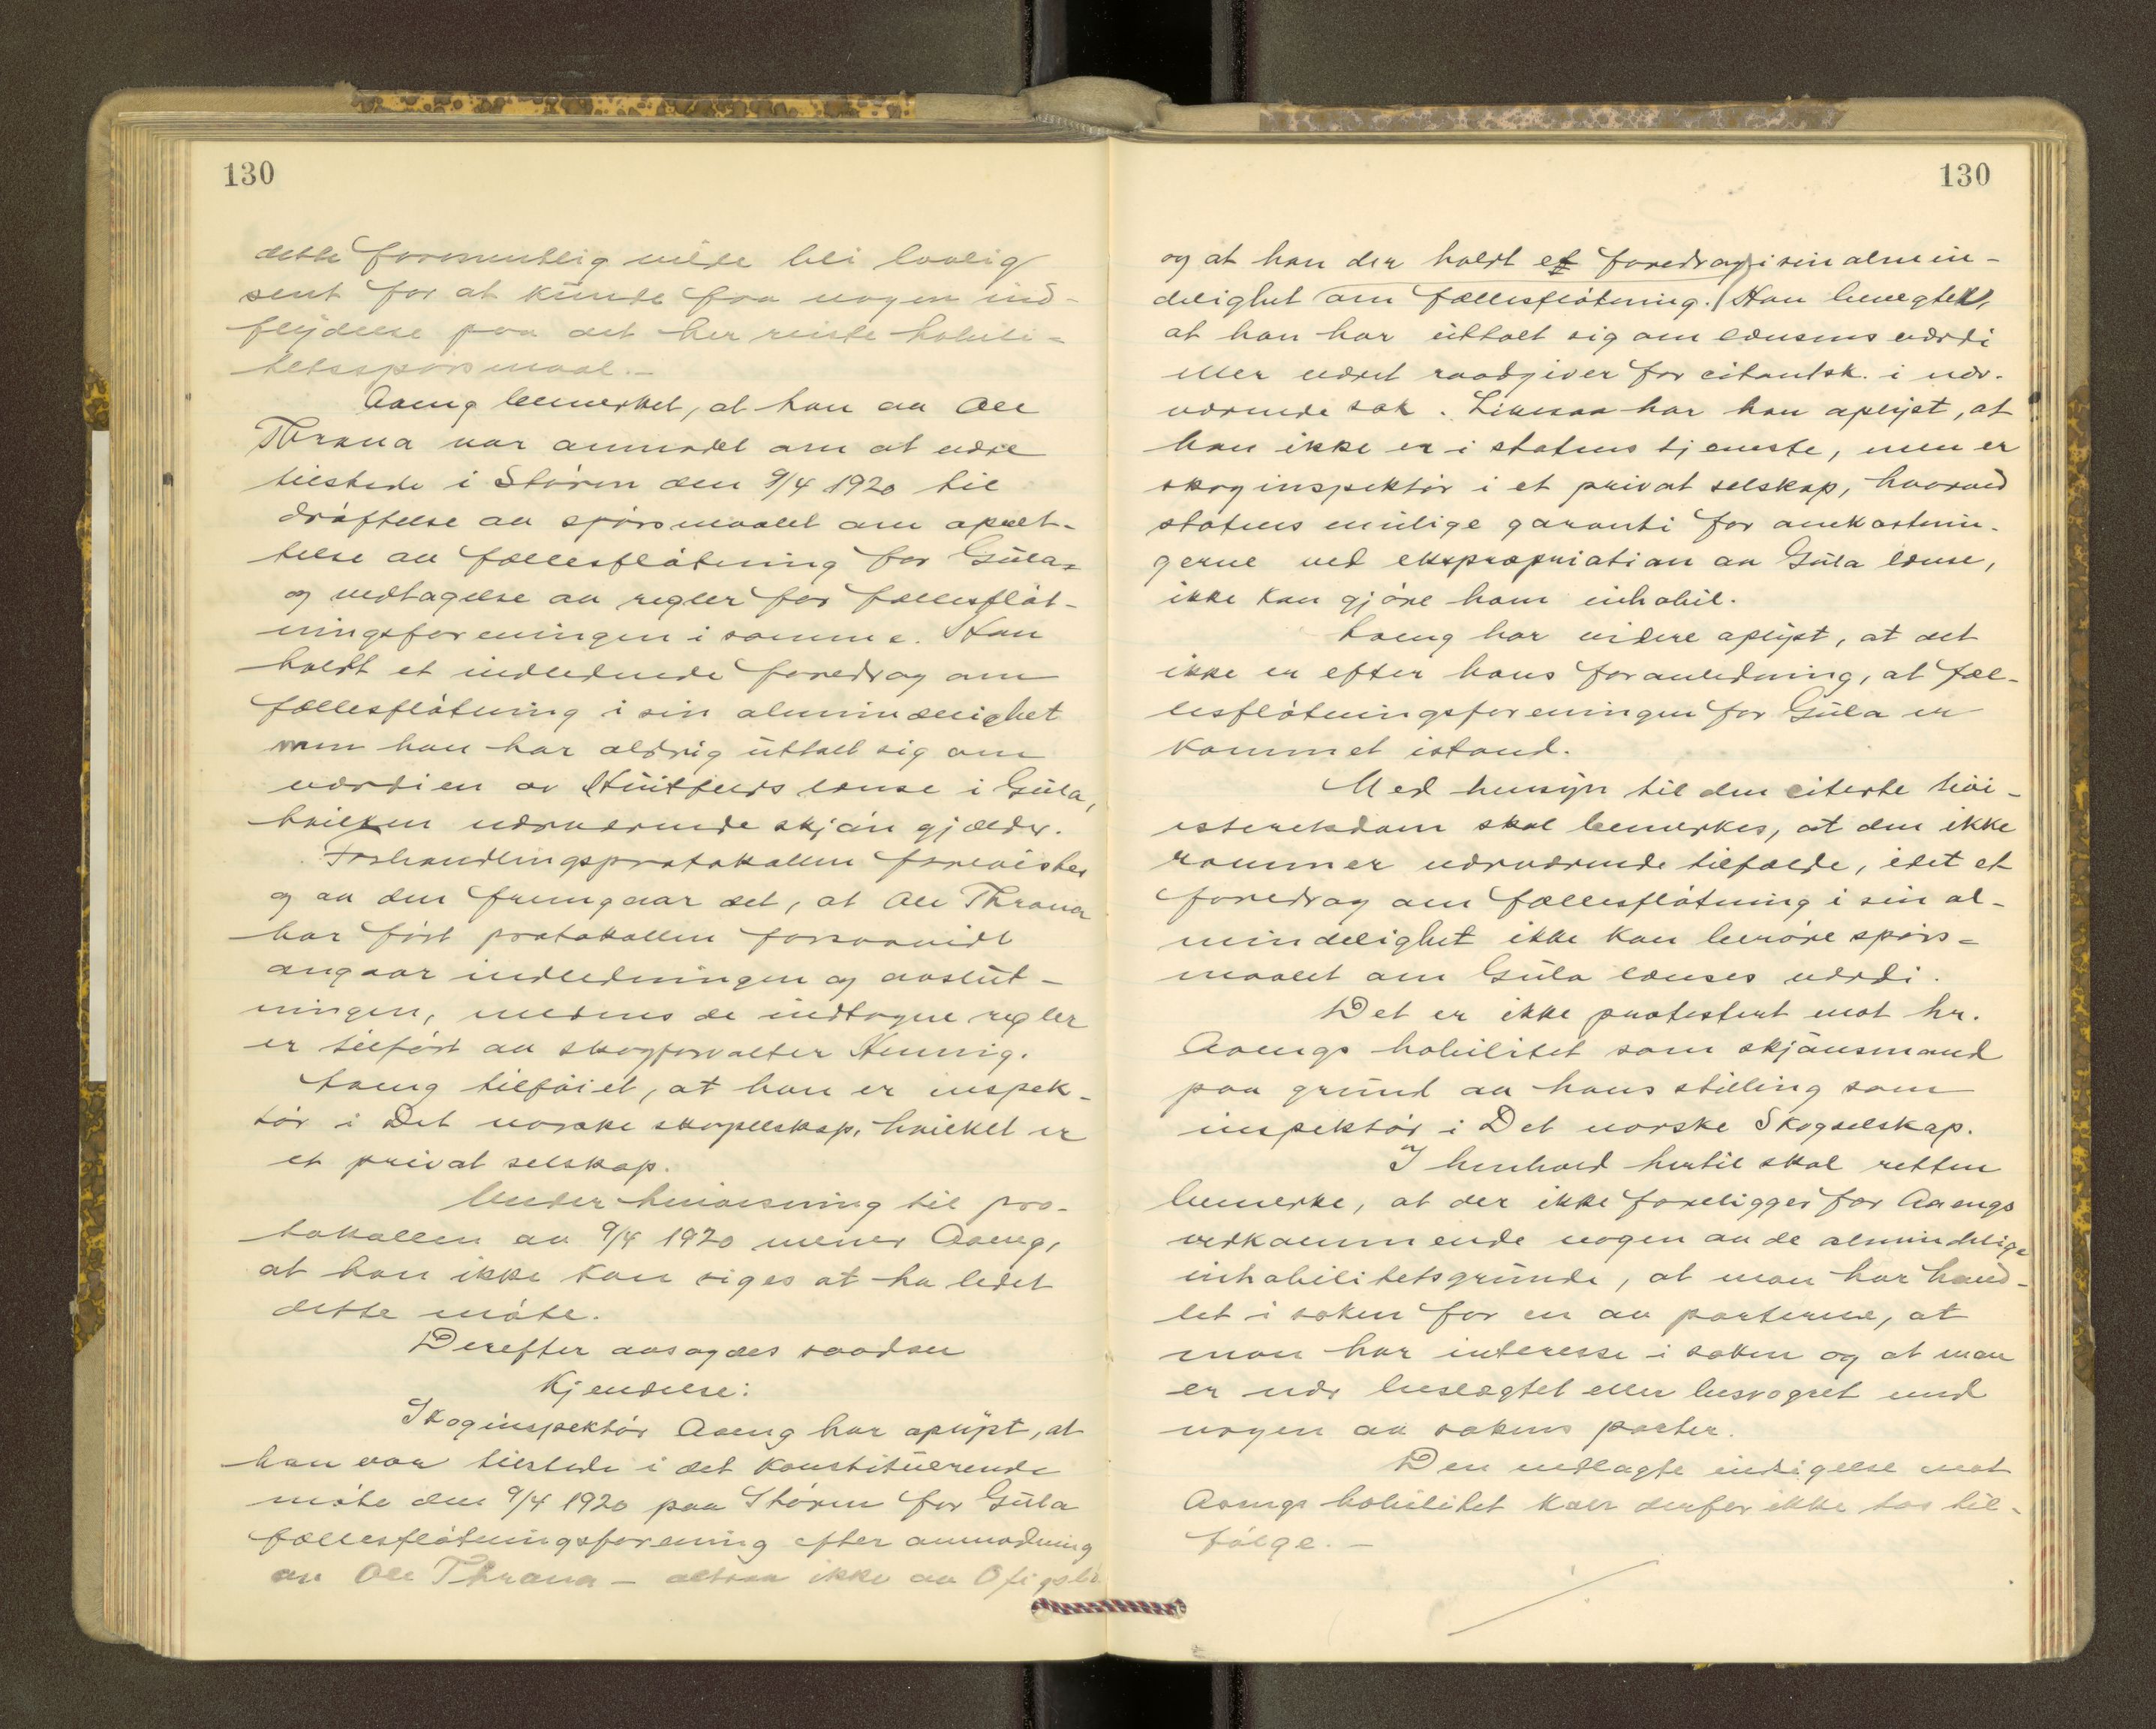 130
dette formentlig vilde bli lovlig
sent for at kunde faa nogen ind-
flydelse paa det her reiste habili-
tetsspørsmaal.-
Aaeng bemerket, at han av Ole
Thrana var anmodet om at være
tilstede i Støren den 9/4 1920 til
drøftelse av spørsmaalet om opret-
telse av fællesfløtning for Gula
og vedtagelse av regler for fællesfløt-
ningsforeningen i samme. Han
holdt et indledende foredrag om
fællesfløtning i sin almindelighet
men han har aldrig uttalt sig om
værdien av Huitfelds lense i Gula,
hvilken nærværende skjøn gjælder.
Forhandlingsprotokollen forevistes
og av den fremgaar det, at Ole Thrana
har ført protokollen forsaavidt
angaar indledningen og avslut-
ningen, medens de indtagne regler
er tilført av skogforvalter Hennig.
Aaeng tilføiet, at han er inspek-
tør i Det norske skogselskap, hvilket er
et privat selskap.
Under henvisning til pro-
tokollen av 9/4 1920 mener Aaeng,
at han ikke kan siges at ha ledet
dette møte.
Derefter avsagdes saadan
Kjendelse:
Skoginspektør Aaeng har oplyst, at
han var tilstede i det konstituerende
møte den 9/4 1920 paa Støren for Gula
fællesfløtningsforening efter anmodning
av Ole Thrana - altsaa ikke av
130
og at han der holdt et foredrag i sin almin-
delighet om fællesfløtning. Han benegter,
at han har uttalt sig om lensens værdi
eller været raadgiver for citantsk. i nær-
værende sak. Likesaa har han oplyst, at
han ikke er i statens tjeneste, men er
skoginspektør i et privat selskap, hvorved
statens mulige garanti for omkostnin-
gerne ved ekspropriation av Gula lense,
ikke kan gjøre ham inhabil.
Aaeng har videre oplyst, at det
ikke er efter hans foranledning, at fæl-
lesfløtningsforeningen for Gula er
kommet istand.
Med hensyn til den citerte høi-
esteretsdom skal bemerkes, at den ikke
rammer nærværende tilfælde, idet et
foredrag om fællesfløtning i sin al-
mindelighet ikke kan berøre spørs-
maalet om Gula lenses værdi.
Det er ikke protestert mot hr.
Aaengs habilitet som skjønsmand
paa grund av hans stilling som
inspektør i Det norske Skogselskap.
I henhold hertil skal retten
bemerke, at der ikke foreligger for Aaengs
vedkommende nogen av de almindelige
inhabilitetsgrunde, at man har hand-
let i saken for en av parterne, at
man har interesse i saken og at man
er nær beslægtet eller besvogret med
nogen av sakens parter.
Den nedlagte indsigelse mot
Aaengs habilitet kan derfor ikke tas til-
følge.-